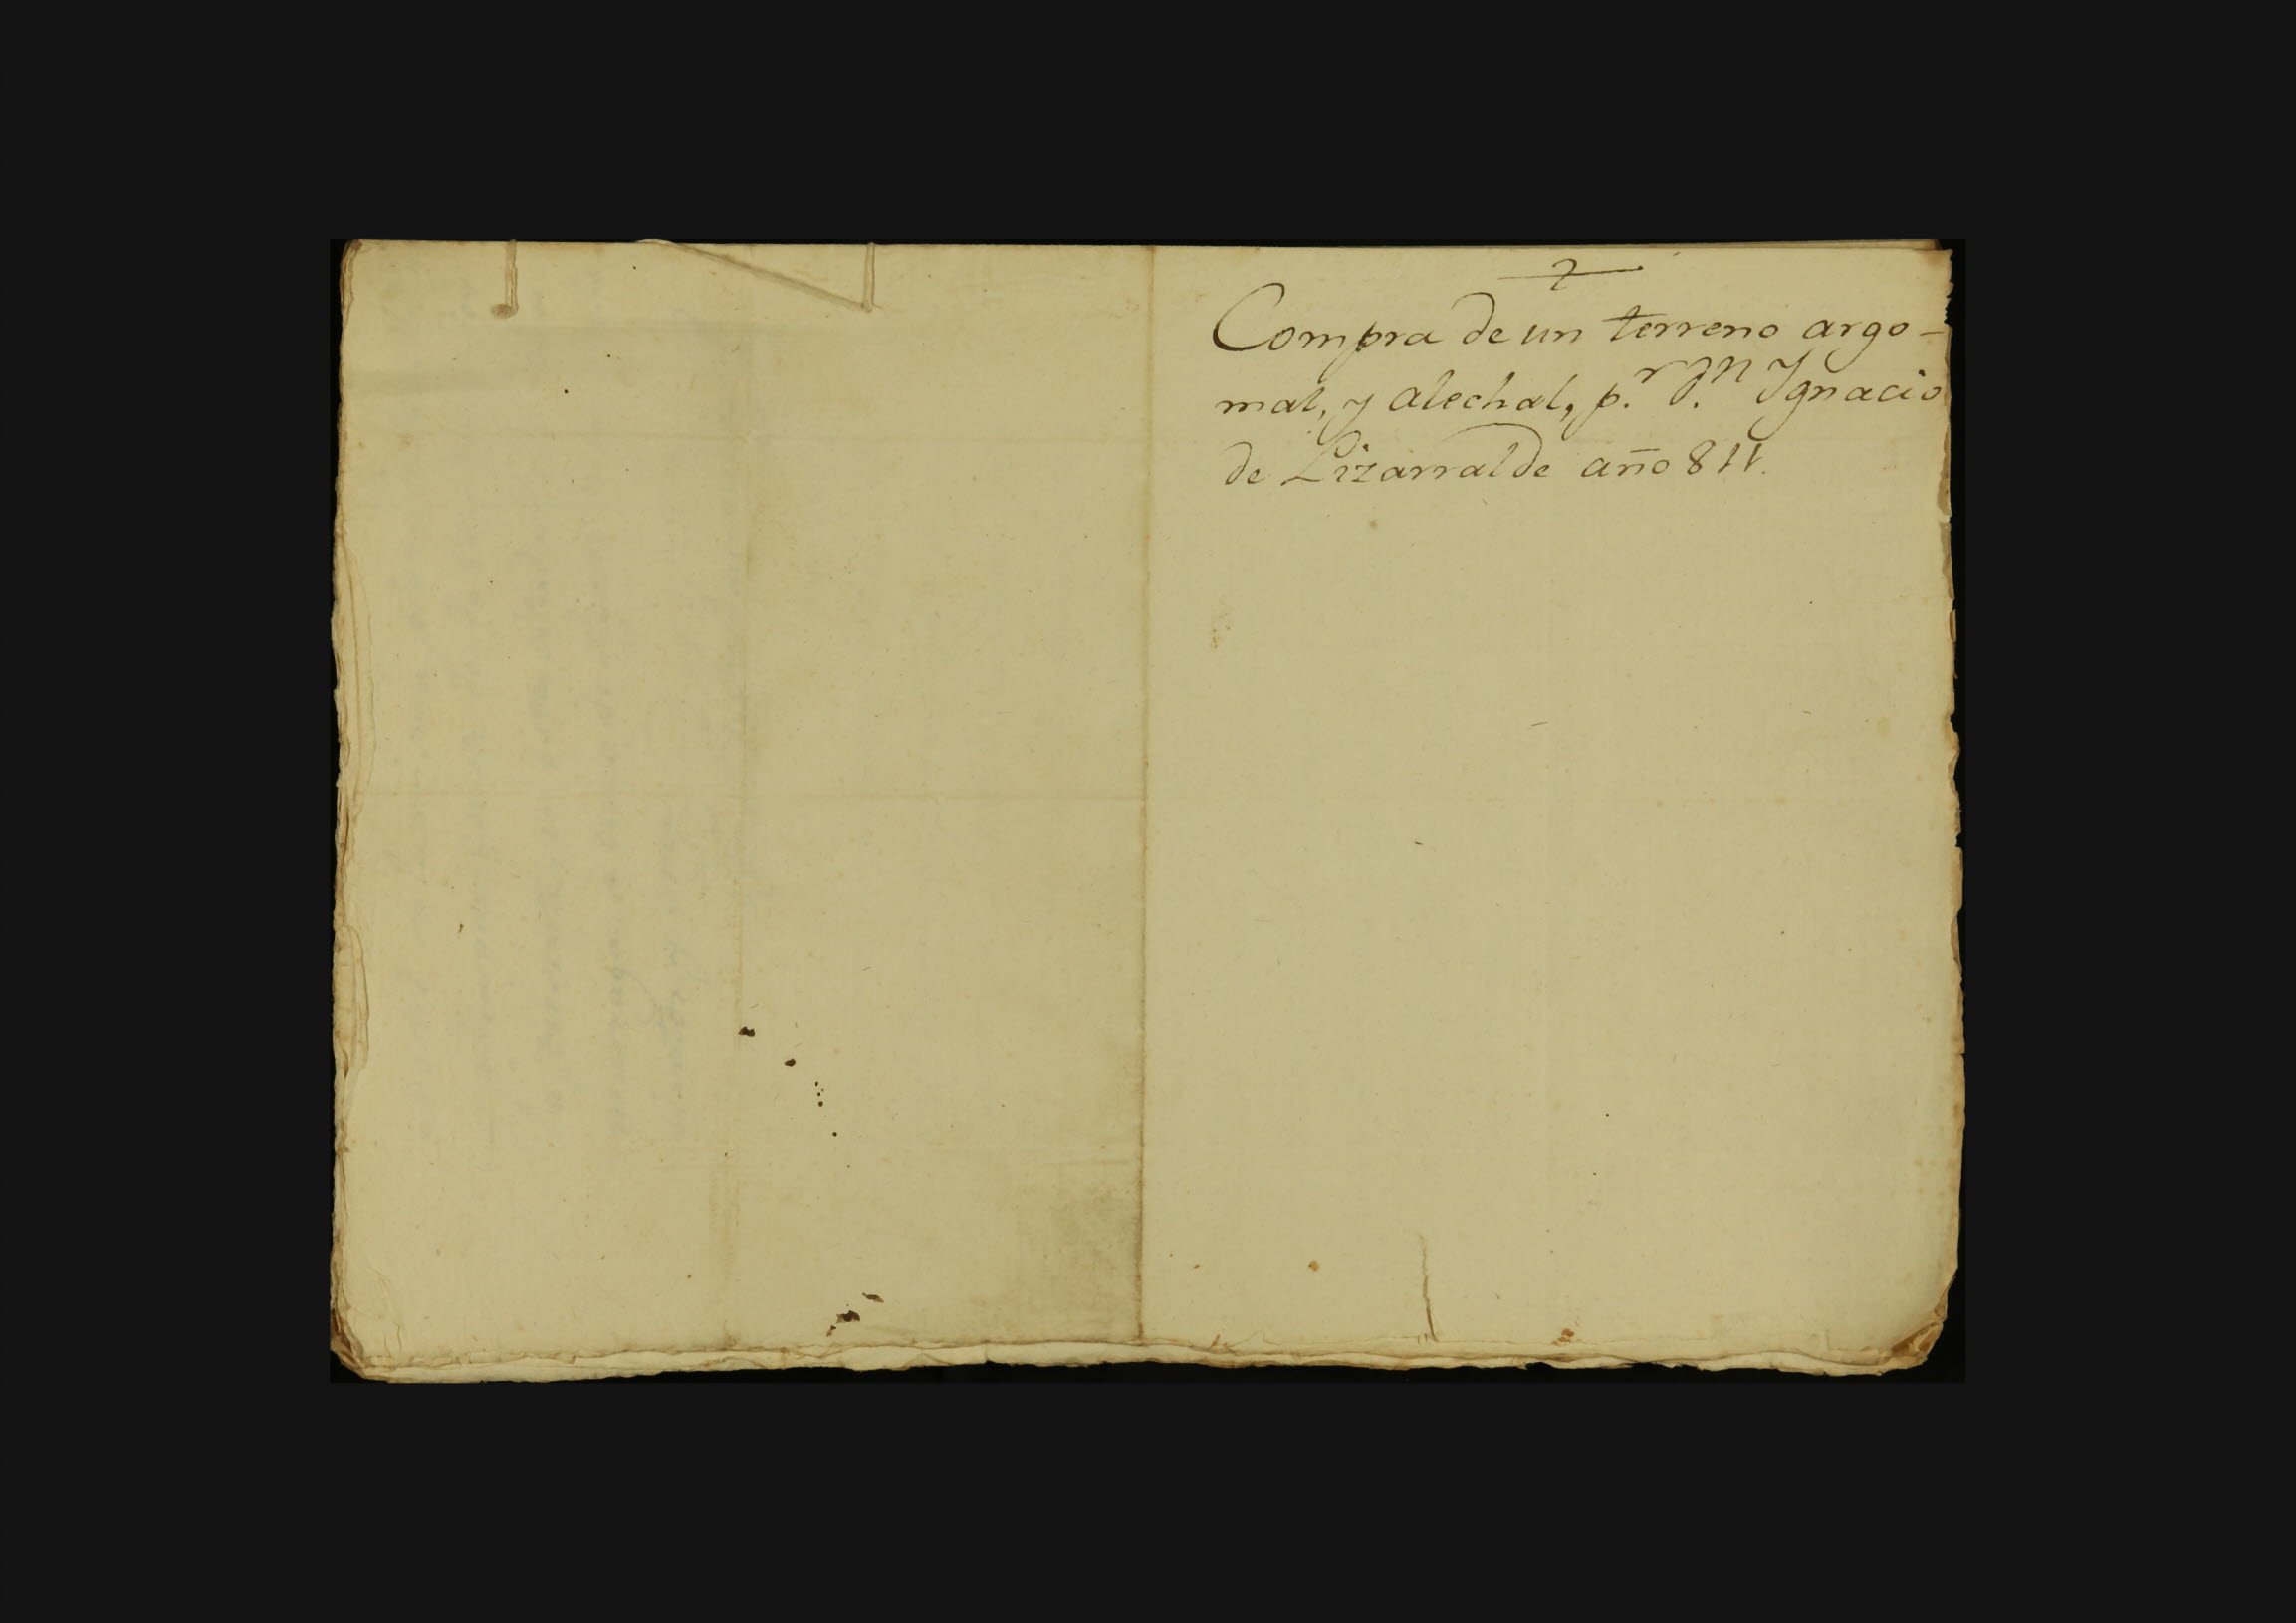 2
Compra de un terreno argo-
mal, y alechal, p.r D.n Ygnacio
de Lizarralde año 811.